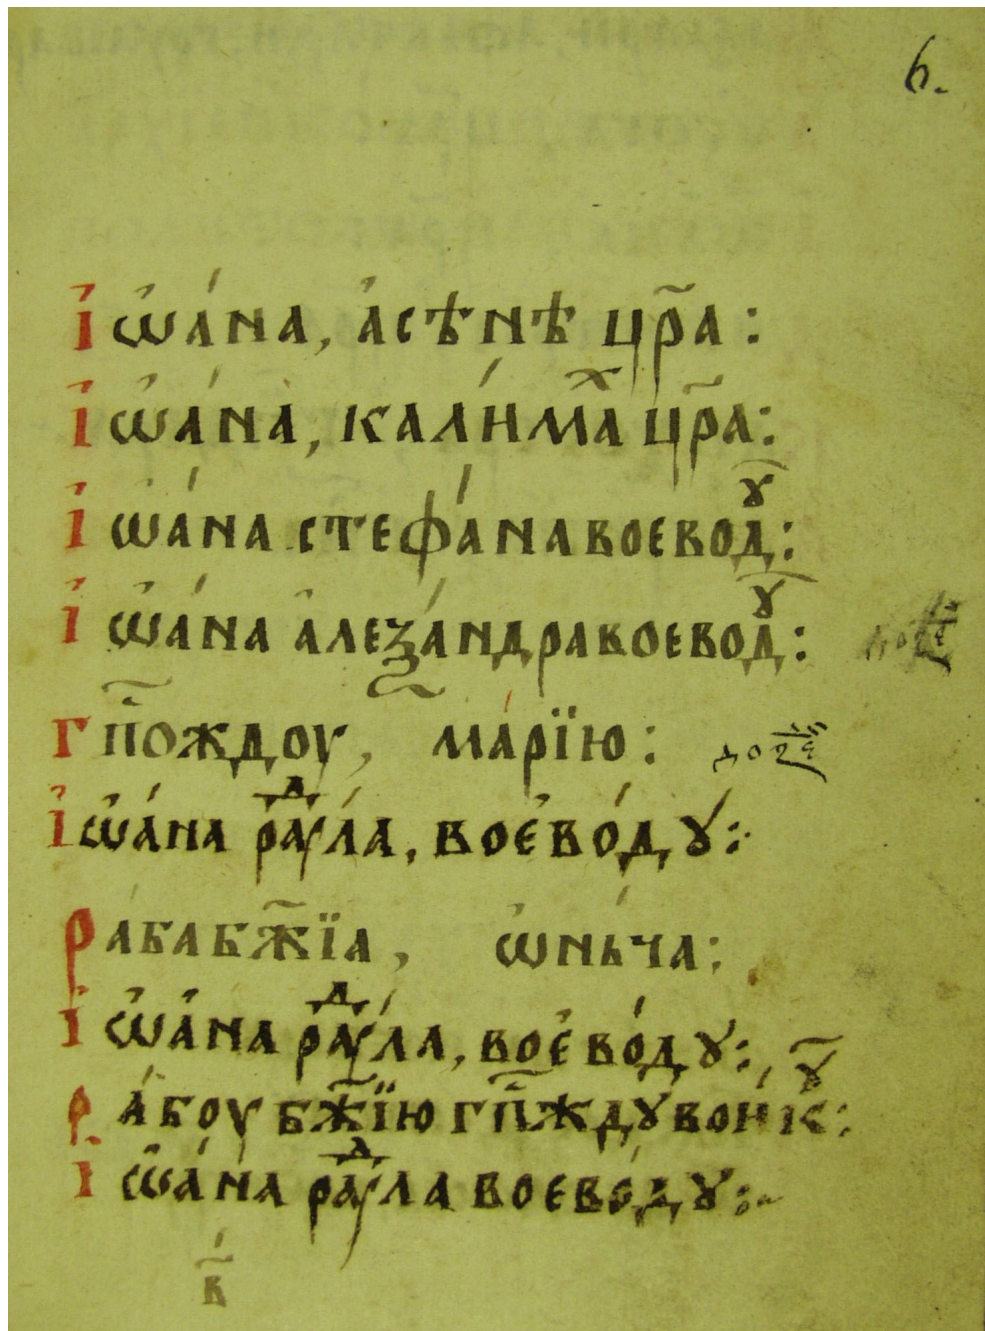 6.
І҆ѡ҆а́на, а҆сѣнѣ цр҃а :
І҆ѡ҆а́на, кали́маⷯ цр҃а :
І҆ѡ҆а́на стефа́на воевоⷣꙋ :
І҆ѡ҆а́на а҆леѯа́ндра воевоⷣꙋ :
Гп҃ождоу, ма́рїю :
І҆ѡ҆а́на раⷣꙋ́ла, вое҆во́дꙋ :
Раба бж҃їа, ѡ҆ньча :
І҆ѡ҆а́на раⷣꙋ́ла, вое҆во́дꙋ :
Ра́боу бж҃їю гп҃ждꙋ воикꙋ :
І҆ѡ҆а́на раⷣꙋ́ла воево́дꙋ :
в҃